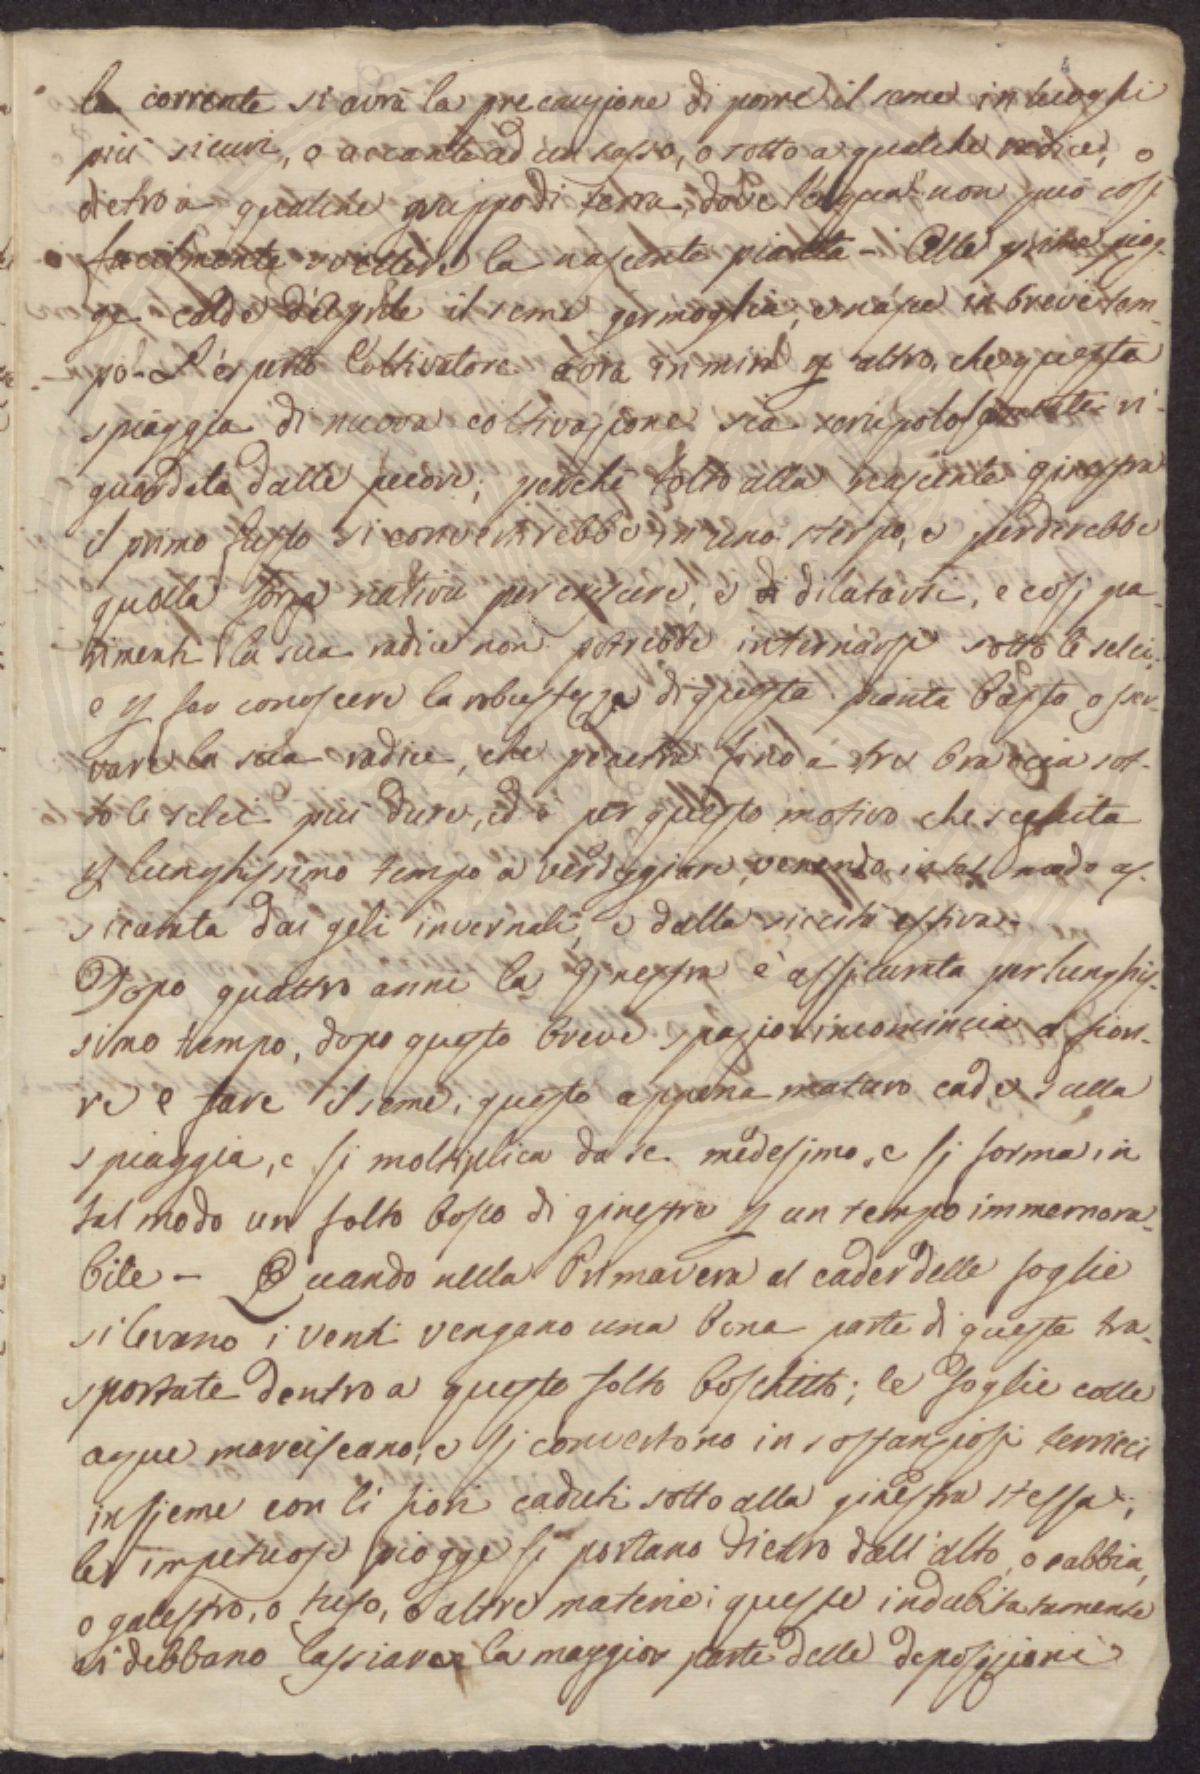 la corrente si avrà la precauzione di porre il seme in luoghi
più sicuri, o accanto ad un sasso, o sotto a qualche radice, o
dietro a qualche gruppo di terra, dove l'aqua non può così
facilmente svellere la nascente pianta - Alle prime piog-
ge calde d'Aprile il seme germoglia, e nasce in breve tem-
po - L'esperto Coltivatore avrà in mira p altro, che questa
spiaggia di nuova coltivazione sia scrupolosamente ri-
guardata dalle pecore; perchè tolto alla nascente ginestra
il primo fusto si convertirebbe in uno sterpo, e perderebbe
quella forza nativa per crescere, e di dilatarsi, e così pa-
rimenti la sua radice non potrebbe internarsi sotto le selci;
e p far conoscere la robustezza di questa pianta basta osser-
vare la sua radice, che penetra fino a tre braccia sot-
to le selci più dure, ed è per questo motivo che seguita
p lunghissimo tempo a verdeggiare, venendo in tal modo as-
sicurata dai geli invernali, e dalla siccità estiva -
Dopo quattro anni la Ginestra è assicurata per lunghis-
simo tempo, dopo questo breve spazio incomincia a fiori-
re e fare il seme, questo appena maturo cade sulla
spiaggia, e si moltiplica da se medesimo, e si forma in
tal modo un folto bosco di ginestra p un tempo immemora-
bile - Quando nella Primavera al cader delle foglie
si levano i venti vengano una bona parte di queste tra-
sportate dentro a questo folto boschetto; le foglie colle
aque marciscano, e si convertono in sostanziosi terricci
insieme con li fiori caduti sotto alla ginestra stessa;
le impetuose piogge si portano dietro dall'alto, o sabbia,
o galestro, o tufo, o altre materie; queste indubitatamente
vi debbano lassiare la maggior parte delle deposizioni